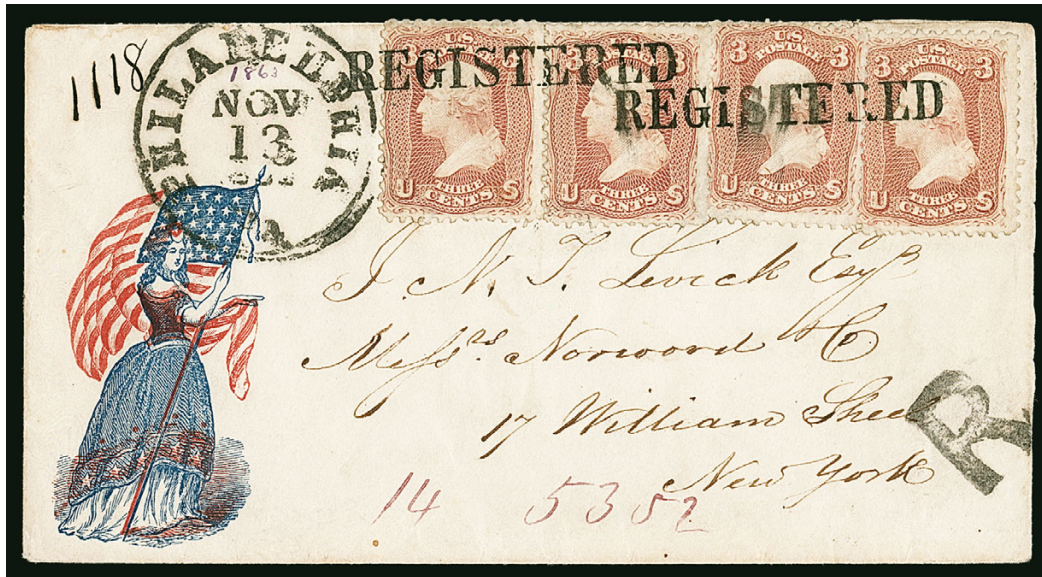 1118
PHILADELPHIA
1863
NOV
13
PA
REGISTERED
REGISTERED
3 U.S. POSTAGE 3
U THREE CENTS S
3 U.S. POSTAGE 3
U THREE CENTS S
3 U.S. POSTAGE 3
U THREE CENTS S
3 U.S. POSTAGE 3
U THREE CENTS S
J. N. T. Levick Esqr
Messrs Norwood & Co
17 William Street
New York
R
14 5352